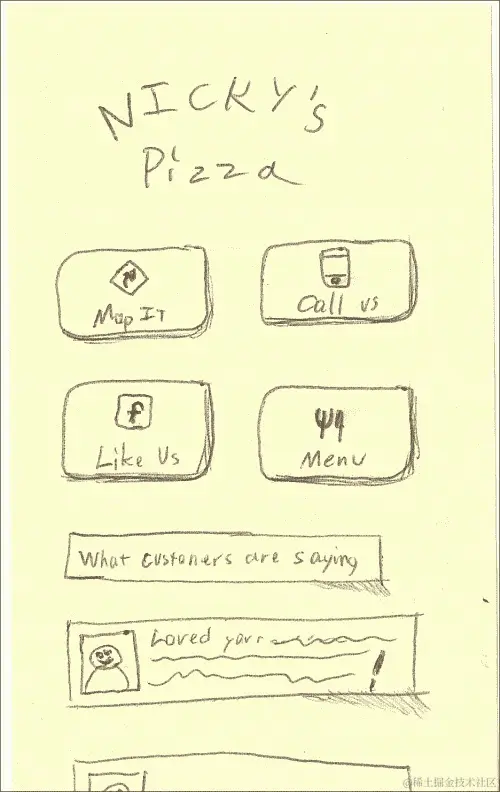 NICKY's
Pizza
Map IT
Call us
f
Like Us
Menu
What customers are saying
Loved your
!
@稀土掘金技术社区